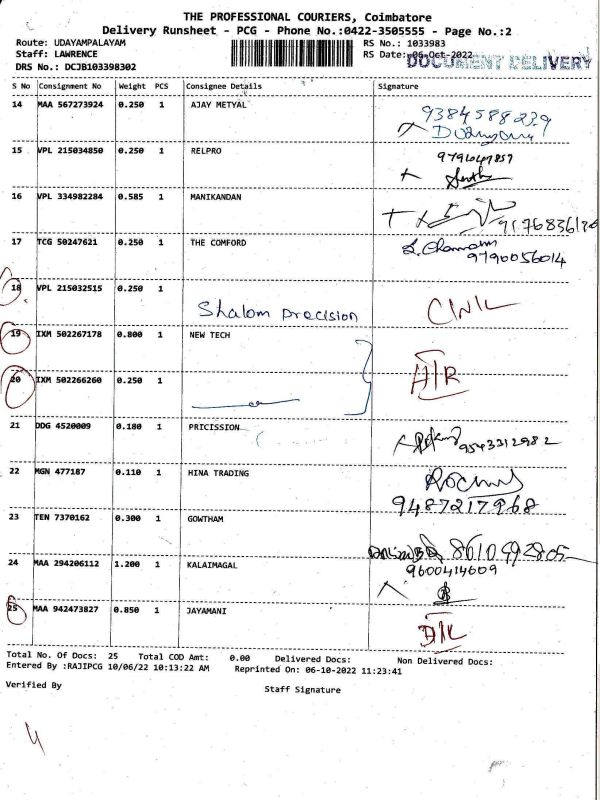 THE PROFESSIONAL COURIERS, Coimbatore
Delivery Runsheet - PCG - Phone No.:0422-3505555 - Page No.:2
Route: UDAYAMPALAYAM
RS No.: 1033983
Staff: LAWRENCE
RS Date: 06-Oct-2022
DOCUMENT DELIVERY
DRS No.: DCJB103398302
S No Consignment No Weight PCS Consignee Details Signature
14 MAA 567273924 0.250 1 AJAY METYAL
9384588239
15 VPL 215034850 0.250 1 RELPRO
16 VPL 334982284 0.585 1 MANIKANDAN
17 TCG 50247621 0.250 1 THE COMFORD
9790056014
18 VPL 215032515 0.250 1
Shalom precision
19 IXM 502267178 0.800 1 NEW TECH
20 IXM 502266260 0.250 1
21 DDG 4520009 0.180 1 PRICISSION
9543312982
22 MGN 477187 0.110 1 HINA TRADING
9487217968
23 TEN 7370162 0.300 1 GOWTHAM
24 MAA 294206112 1.200 1 KALAIMAGAL
9600414609
25 MAA 942473827 0.850 1 JAYAMANI
Total No. Of Docs: 25 Total COD Amt: 0.00 Delivered Docs: Non Delivered Docs:
Entered By :RAJIPCG 10/06/22 10:13:22 AM Reprinted On: 06-10-2022 11:23:41
Verified By Staff Signature
4